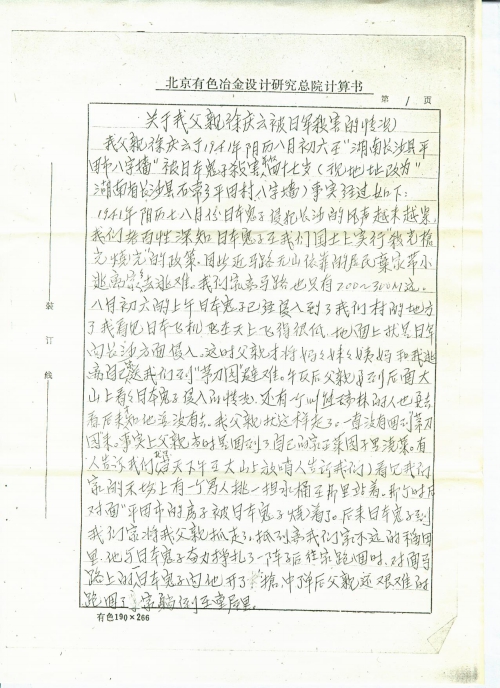 北京有色冶金设计研究总院计算书
第 1 页
关于我父亲徐庆云被日军杀害的情况
我父亲徐庆云于1941年阴历八月初六在"湖南长沙县平
田市八字墙"被日本鬼子杀害 四十七岁（现地址改为"
湖南省长沙县 平田村八字墙）事实经过如下：
1941年阴历七八月份日本鬼子侵犯长沙的风声越来越紧
我们老百性深知日本鬼子在我们国土上实行"杀光抢
光烧光"的政策。因此近马路无山依靠的居民弃家带小
逃 去逃难。我们家离马路也只有200〜300M远。
八月初六的上午日本鬼子已经侵入到了我们村的地边
了我看见日本飞机飞在天上飞得很低，地面上就是日军
向长沙方面侵入。这时父亲才将妈 妹 姨妈和我逃
离自己 我们到 避难。午饭后父亲 到后面大
山上看 日本鬼子侵入的情况，还有个叫 林的人也要去
看后来 他并没有去。我父亲就这样走了。一直没有回到
回来。事实上父亲当时是回到了自己的家 菜园子里浇菜。有
人告诉我们（当天下午在大山上放哨人告诉我们）看见我们
家的禾场上有一个男人挑一担水桶在那里站着，那个时后
对面"平田市的房子被日本鬼子烧着了。后来日本鬼子到
我们家将我父亲抓走了。抓到离我们家不远的稻田
里，他与日本鬼子奋力挣扎了一阵子后往家跑回时，对面马
路上的日本鬼子向他开了 枪，中弹后父亲还艰难的
跑回了家躺到在 屋里。
装
订
线
有色190×266